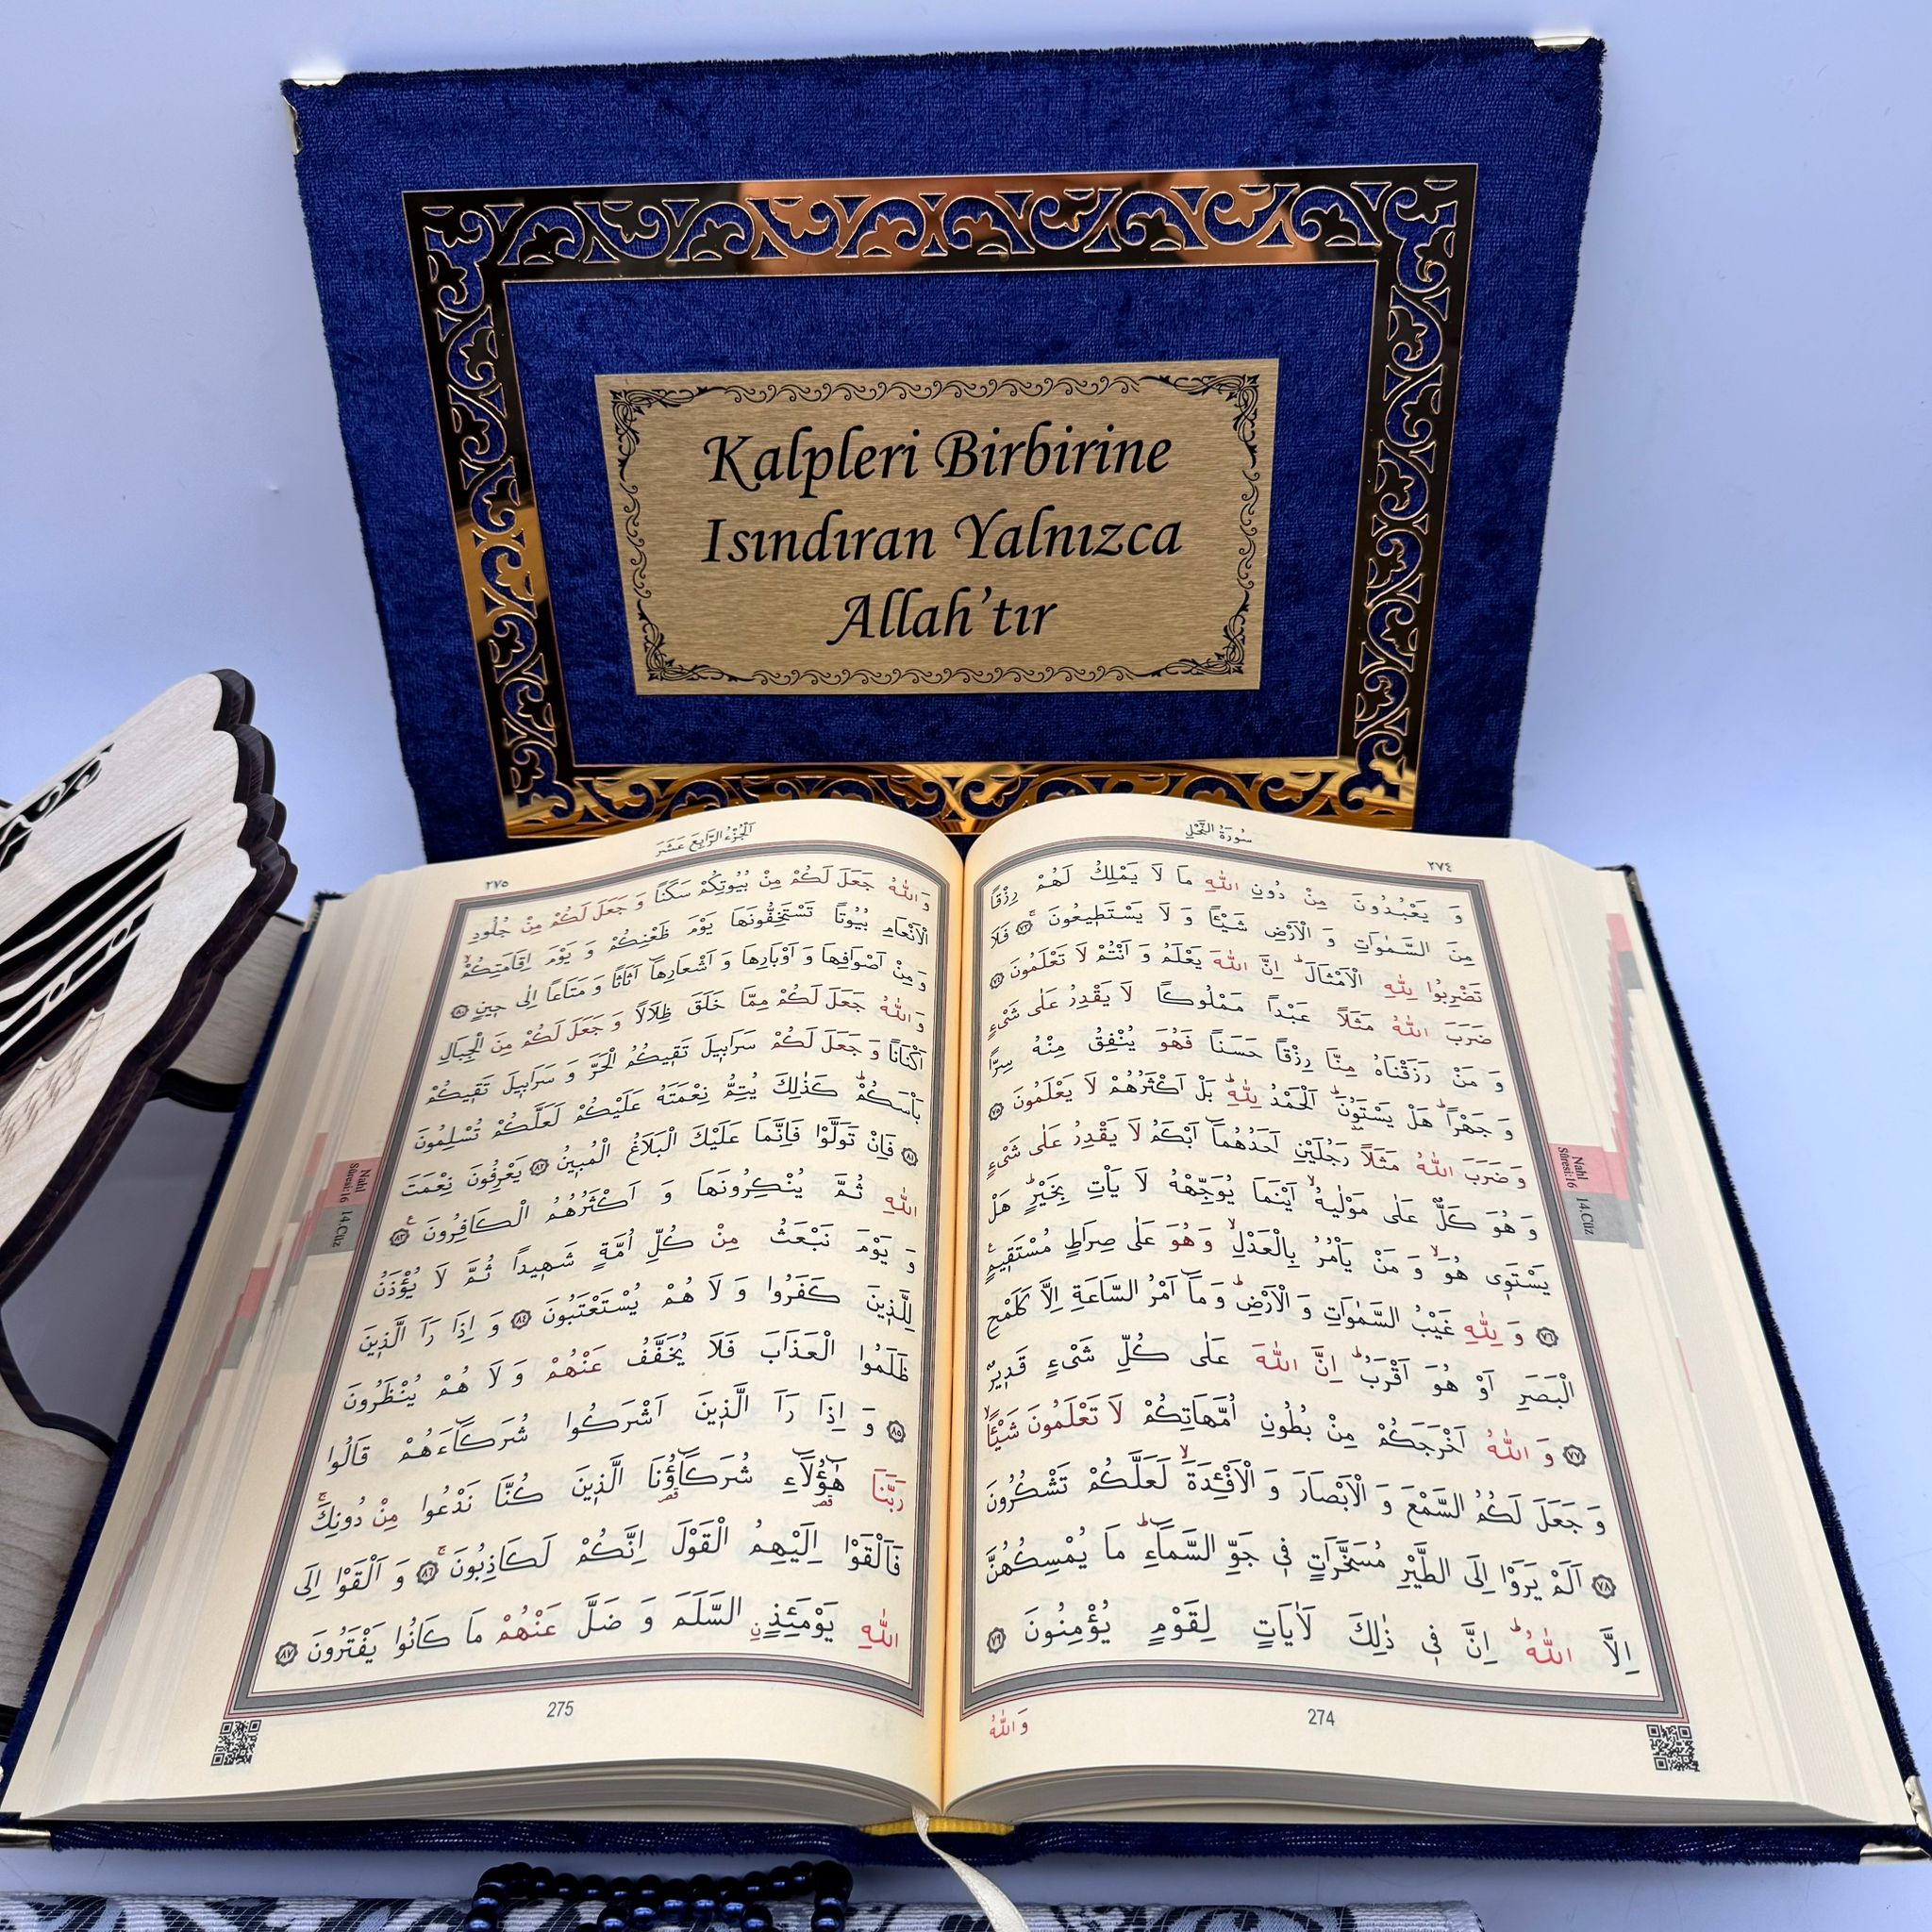 Kalpleri Birbirine
Isındıran Yalnızca
Allah'tır
سُورَةُ النَّحْلِ
٢٧٤
وَ يَعْبُدُونَ مِنْ دُونِ اللّٰهِ مَا لَا يَمْلِكُ لَهُمْ رِزْقًا
مِنَ السَّمٰوَاتِ وَ الْاَرْضِ شَيْـًٔا وَ لَا يَسْتَط۪يعُونَۚ ﴿٧٣﴾ فَلَا
تَضْرِبُوا لِلّٰهِ الْاَمْثَالَۜ اِنَّ اللّٰهَ يَعْلَمُ وَ اَنْتُمْ لَا تَعْلَمُونَ ﴿٧٤﴾
ضَرَبَ اللّٰهُ مَثَلًا عَبْدًا مَمْلُوكًا لَا يَقْدِرُ عَلٰى شَيْءٍ
وَ مَنْ رَزَقْنَاهُ مِنَّا رِزْقًا حَسَنًا فَهُوَ يُنْفِقُ مِنْهُ سِرًّا
وَ جَهْرًاۜ هَلْ يَسْتَوُ۫نَۜ اَلْحَمْدُ لِلّٰهِۜ بَلْ اَكْثَرُهُمْ لَا يَعْلَمُونَ ﴿٧٥﴾
وَ ضَرَبَ اللّٰهُ مَثَلًا رَجُلَيْنِ اَحَدُهُمَٓا اَبْكَمُ لَا يَقْدِرُ عَلٰى شَيْءٍ
وَ هُوَ كَلٌّ عَلٰى مَوْلٰيهُۙ اَيْنَمَا يُوَجِّهْهُ لَا يَأْتِ بِخَيْرٍۜ هَلْ
يَسْتَو۪ي هُوَۙ وَ مَنْ يَأْمُرُ بِالْعَدْلِۙ وَ هُوَ عَلٰى صِرَاطٍ مُسْتَق۪يمٍ۟
﴿٧٦﴾ وَ لِلّٰهِ غَيْبُ السَّمٰوَاتِ وَ الْاَرْضِۜ وَ مَٓا اَمْرُ السَّاعَةِ اِلَّا كَلَمْحِ
الْبَصَرِ اَوْ هُوَ اَقْرَبُۜ اِنَّ اللّٰهَ عَلٰى كُلِّ شَيْءٍ قَد۪يرٌ
﴿٧٧﴾ وَ اللّٰهُ اَخْرَجَكُمْ مِنْ بُطُونِ اُمَّهَاتِكُمْ لَا تَعْلَمُونَ شَيْـًٔاۙ
وَ جَعَلَ لَكُمُ السَّمْعَ وَ الْاَبْصَارَ وَ الْاَفْـِٔدَةَۙ لَعَلَّكُمْ تَشْكُرُونَ
﴿٧٨﴾ اَلَمْ يَرَوْا اِلَى الطَّيْرِ مُسَخَّرَاتٍ ف۪ي جَوِّ السَّمَٓاءِۜ مَا يُمْسِكُهُنَّ
اِلَّا اللّٰهُۜ اِنَّ ف۪ي ذٰلِكَ لَاٰيَاتٍ لِقَوْمٍ يُؤْمِنُونَ ﴿٧٩﴾
وَ اللّٰهُ
274
Nahl
Sûresi:16
14.Cüz
اَلْجُزْءُ الرَّابِعَ عَشَرَ
٢٧٥
وَ اللّٰهُ جَعَلَ لَكُمْ مِنْ بُيُوتِكُمْ سَكَنًا وَ جَعَلَ لَكُمْ مِنْ جُلُودِ
الْاَنْعَامِ بُيُوتًا تَسْتَخِفُّونَهَا يَوْمَ ظَعْنِكُمْ وَ يَوْمَ اِقَامَتِكُمْۙ
وَ مِنْ اَصْوَافِهَا وَ اَوْبَارِهَا وَ اَشْعَارِهَٓا اَثَاثًا وَ مَتَاعًا اِلٰى ح۪ينٍ ﴿٨٠﴾
وَ اللّٰهُ جَعَلَ لَكُمْ مِمَّا خَلَقَ ظِلَالًا وَ جَعَلَ لَكُمْ مِنَ الْجِبَالِ
اَكْنَانًا وَ جَعَلَ لَكُمْ سَرَاب۪يلَ تَق۪يكُمُ الْحَرَّ وَ سَرَاب۪يلَ تَق۪يكُمْ
بَأْسَكُمْۜ كَذٰلِكَ يُتِمُّ نِعْمَتَهُ عَلَيْكُمْ لَعَلَّكُمْ تُسْلِمُونَ
﴿٨١﴾ فَاِنْ تَوَلَّوْا فَاِنَّمَا عَلَيْكَ الْبَلَاغُ الْمُب۪ينُ ﴿٨٢﴾ يَعْرِفُونَ نِعْمَتَ
اللّٰهِ ثُمَّ يُنْكِرُونَهَا وَ اَكْثَرُهُمُ الْكَافِرُونَ۟ ﴿٨٣﴾
وَ يَوْمَ نَبْعَثُ مِنْ كُلِّ اُمَّةٍ شَه۪يدًا ثُمَّ لَا يُؤْذَنُ
لِلَّذ۪ينَ كَفَرُوا وَ لَا هُمْ يُسْتَعْتَبُونَ ﴿٨٤﴾ وَ اِذَا رَاَ الَّذ۪ينَ
ظَلَمُوا الْعَذَابَ فَلَا يُخَفَّفُ عَنْهُمْ وَ لَا هُمْ يُنْظَرُونَ
﴿٨٥﴾ وَ اِذَا رَاَ الَّذ۪ينَ اَشْرَكُوا شُرَكَٓاءَهُمْ قَالُوا
رَبَّنَا هٰٓؤُ۬لَٓاءِ شُرَكَٓاؤُ۬نَا الَّذ۪ينَ كُنَّا نَدْعُوا مِنْ دُونِكَۚ
فَاَلْقَوْا اِلَيْهِمُ الْقَوْلَ اِنَّكُمْ لَكَاذِبُونَۚ ﴿٨٦﴾ وَ اَلْقَوْا اِلَى
اللّٰهِ يَوْمَئِذٍۨ السَّلَمَ وَ ضَلَّ عَنْهُمْ مَا كَانُوا يَفْتَرُونَ ﴿٨٧﴾
275
Nahl
Sûresi:16
14.Cüz